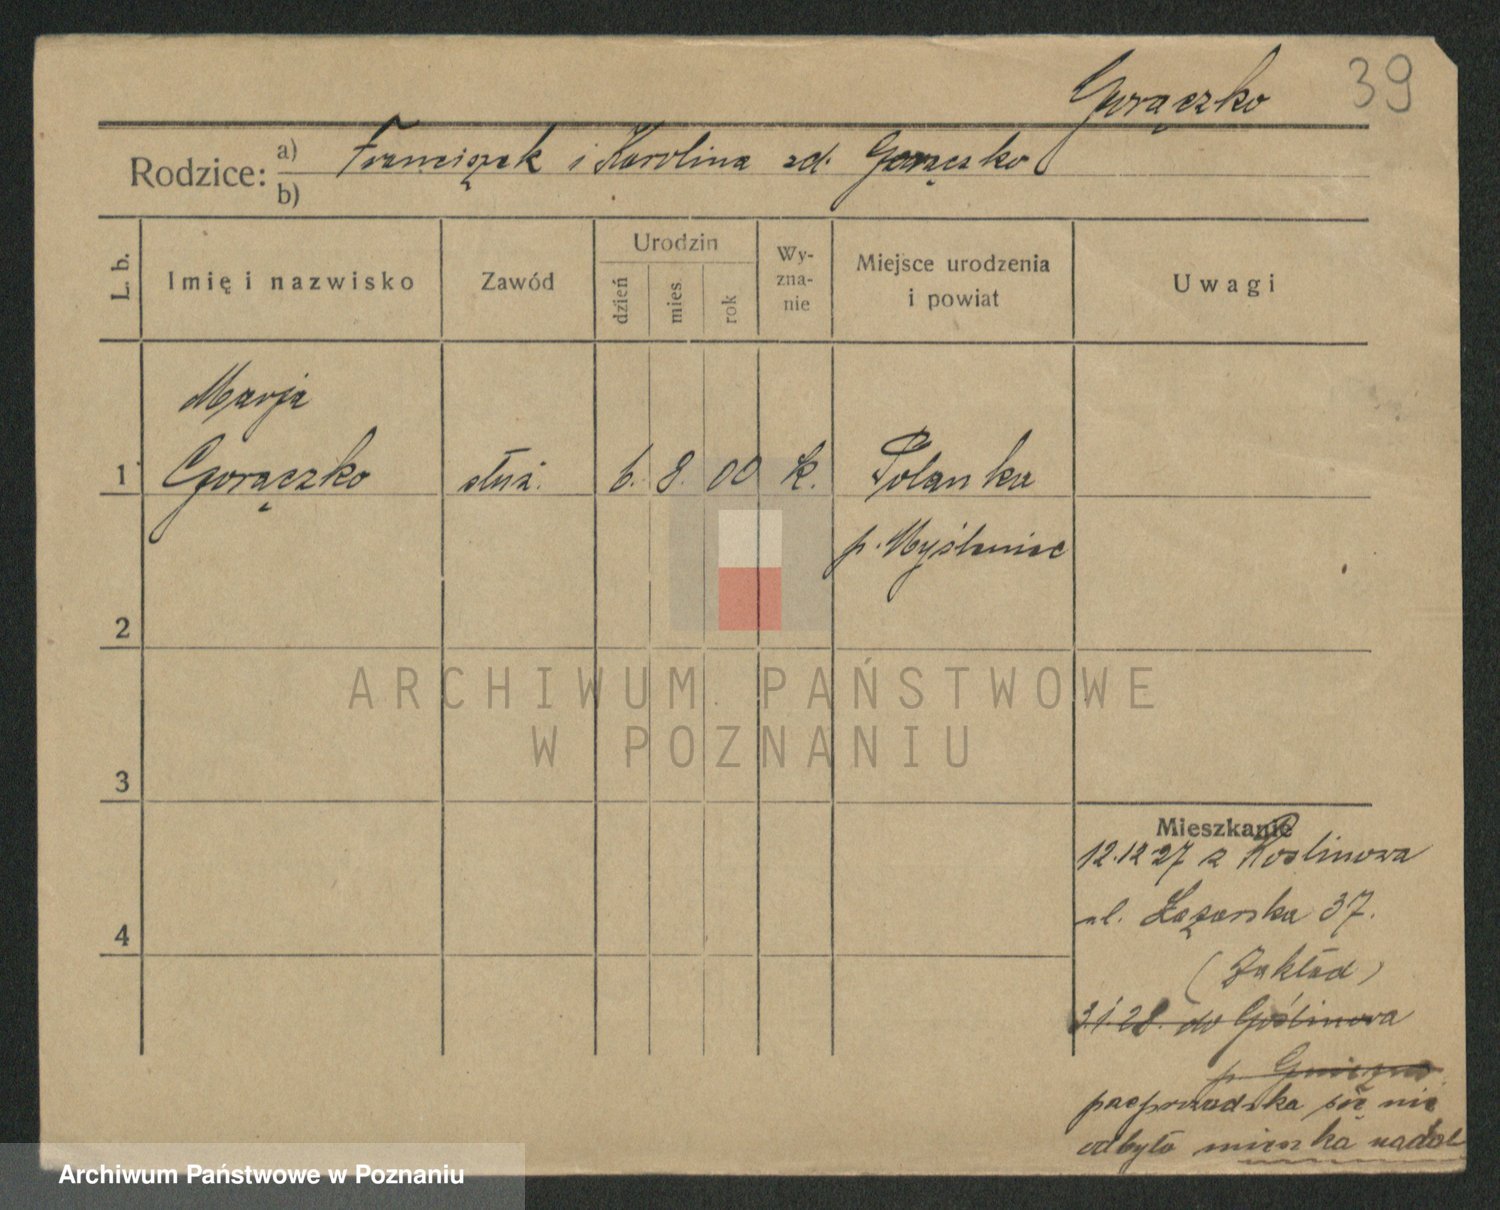 Gorączko 39
Rodzice: a) Franciszek i Karolina zd. Gorączko
b)
L. b. Imię i nazwisko Zawód Urodzin dzień mies. rok Wy-zna-nie Miejsce urodzenia i powiat Uwagi
Marja
1 Gorączko służ. 6. 8. 00 k. Polanka
p. Myślenice
2
ARCHIWUM PAŃSTWOWE
W POZNANIU
3
Mieszkanie
12.12 27 z Roślinowa
ul. Łazarska 37.
4
(Zakład)
3.1.28. do Goślinowa
p. Gniezno
paeprowadzka się nie
odbyła mieszka nadal
Archiwum Państwowe w Poznaniu